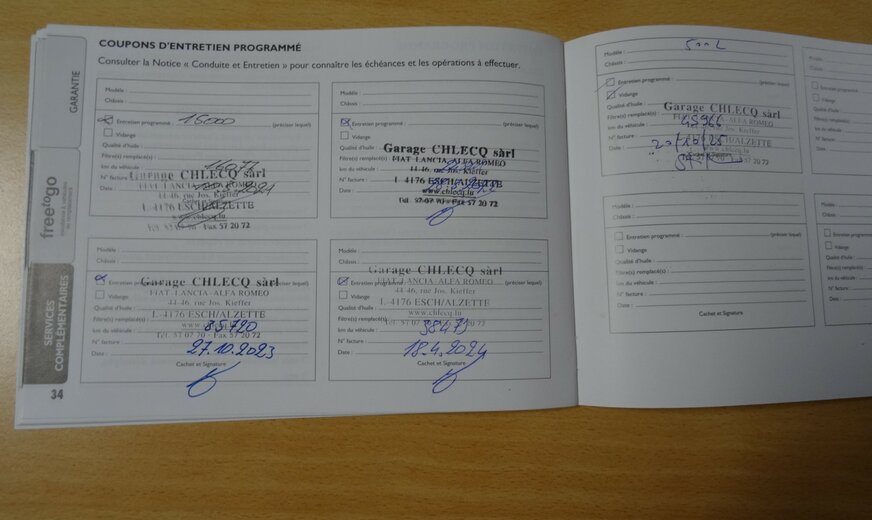 COUPONS D'ENTRETIEN PROGRAMMÉ
Consulter la Notice « Conduite et Entretien » pour connaître les échéances et les opérations à effectuer.
GARANTIE
freetogo
SERVICES
COMPLÉMENTAIRES
Modèle :
Châssis :
Entretien programmé : 15000 (préciser lequel)
Vidange
Qualité d'huile :
Filtre(s) remplacé(s) :
km du véhicule :
N° facture :
Date :
Garage CHLECQ sàrl
FIAT-LANCIA-ALFA ROMEO
44-46, rue Jos. Kieffer
L-4176 ESCH/ALZETTE
www.chlecq.lu
Fax 57 20 72
Modèle :
Châssis :
Entretien programmé : (préciser lequel)
Vidange
Qualité d'huile :
Filtre(s) remplacé(s) :
km du véhicule :
N° facture :
Date :
Garage CHLECQ sàrl
FIAT-LANCIA-ALFA ROMEO
44-46, rue Jos. Kieffer
L-4176 ESCH/ALZETTE
www.chlecq.lu
Tél. 57 07 70 - Fax 57 20 72
Modèle :
Châssis :
Garage CHLECQ sàrl
Entretien programmé (préciser lequel)
FIAT-LANCIA-ALFA ROMEO
Vidange
44-46, rue Jos. Kieffer
Qualité d'huile :
L-4176 ESCH/ALZETTE
Filtre(s) remplacé(s) :
www.chlecq.lu
km du véhicule : 35720
Tél. 57 07 70 - Fax 57 20 72
N° facture :
Date : 27.10.2023
Cachet et Signature
Modèle :
Châssis :
Garage CHLECQ sàrl
Entretien programmé (préciser lequel)
FIAT-LANCIA-ALFA ROMEO
Vidange
44-46, rue Jos. Kieffer
Qualité d'huile :
L-4176 ESCH/ALZETTE
Filtre(s) remplacé(s) :
www.chlecq.lu
km du véhicule : 38479
N° facture :
Date : 18.4.2024
Cachet et Signature
34
Modèle :
Châssis :
Entretien programmé : (préciser lequel)
Vidange
Qualité d'huile :
Garage CHLECQ sàrl
Filtre(s) remplacé(s)
km du véhicule : 45966
N° facture
Date :
Modèle :
Châssis :
Entretien programmé : (préciser lequel)
Vidange
Qualité d'huile :
Filtre(s) remplacé(s) :
km du véhicule :
N° facture :
Date :
Cachet et Signature
Modèle :
Châssis :
Entretien
Vidange
Qualité d'huile
Filtre(s)
km du
N° facture
Date :
Modèle :
Châssis :
Entretien
Vidange
Qualité d'huile
Filtre(s)
km du
N° facture
Date :